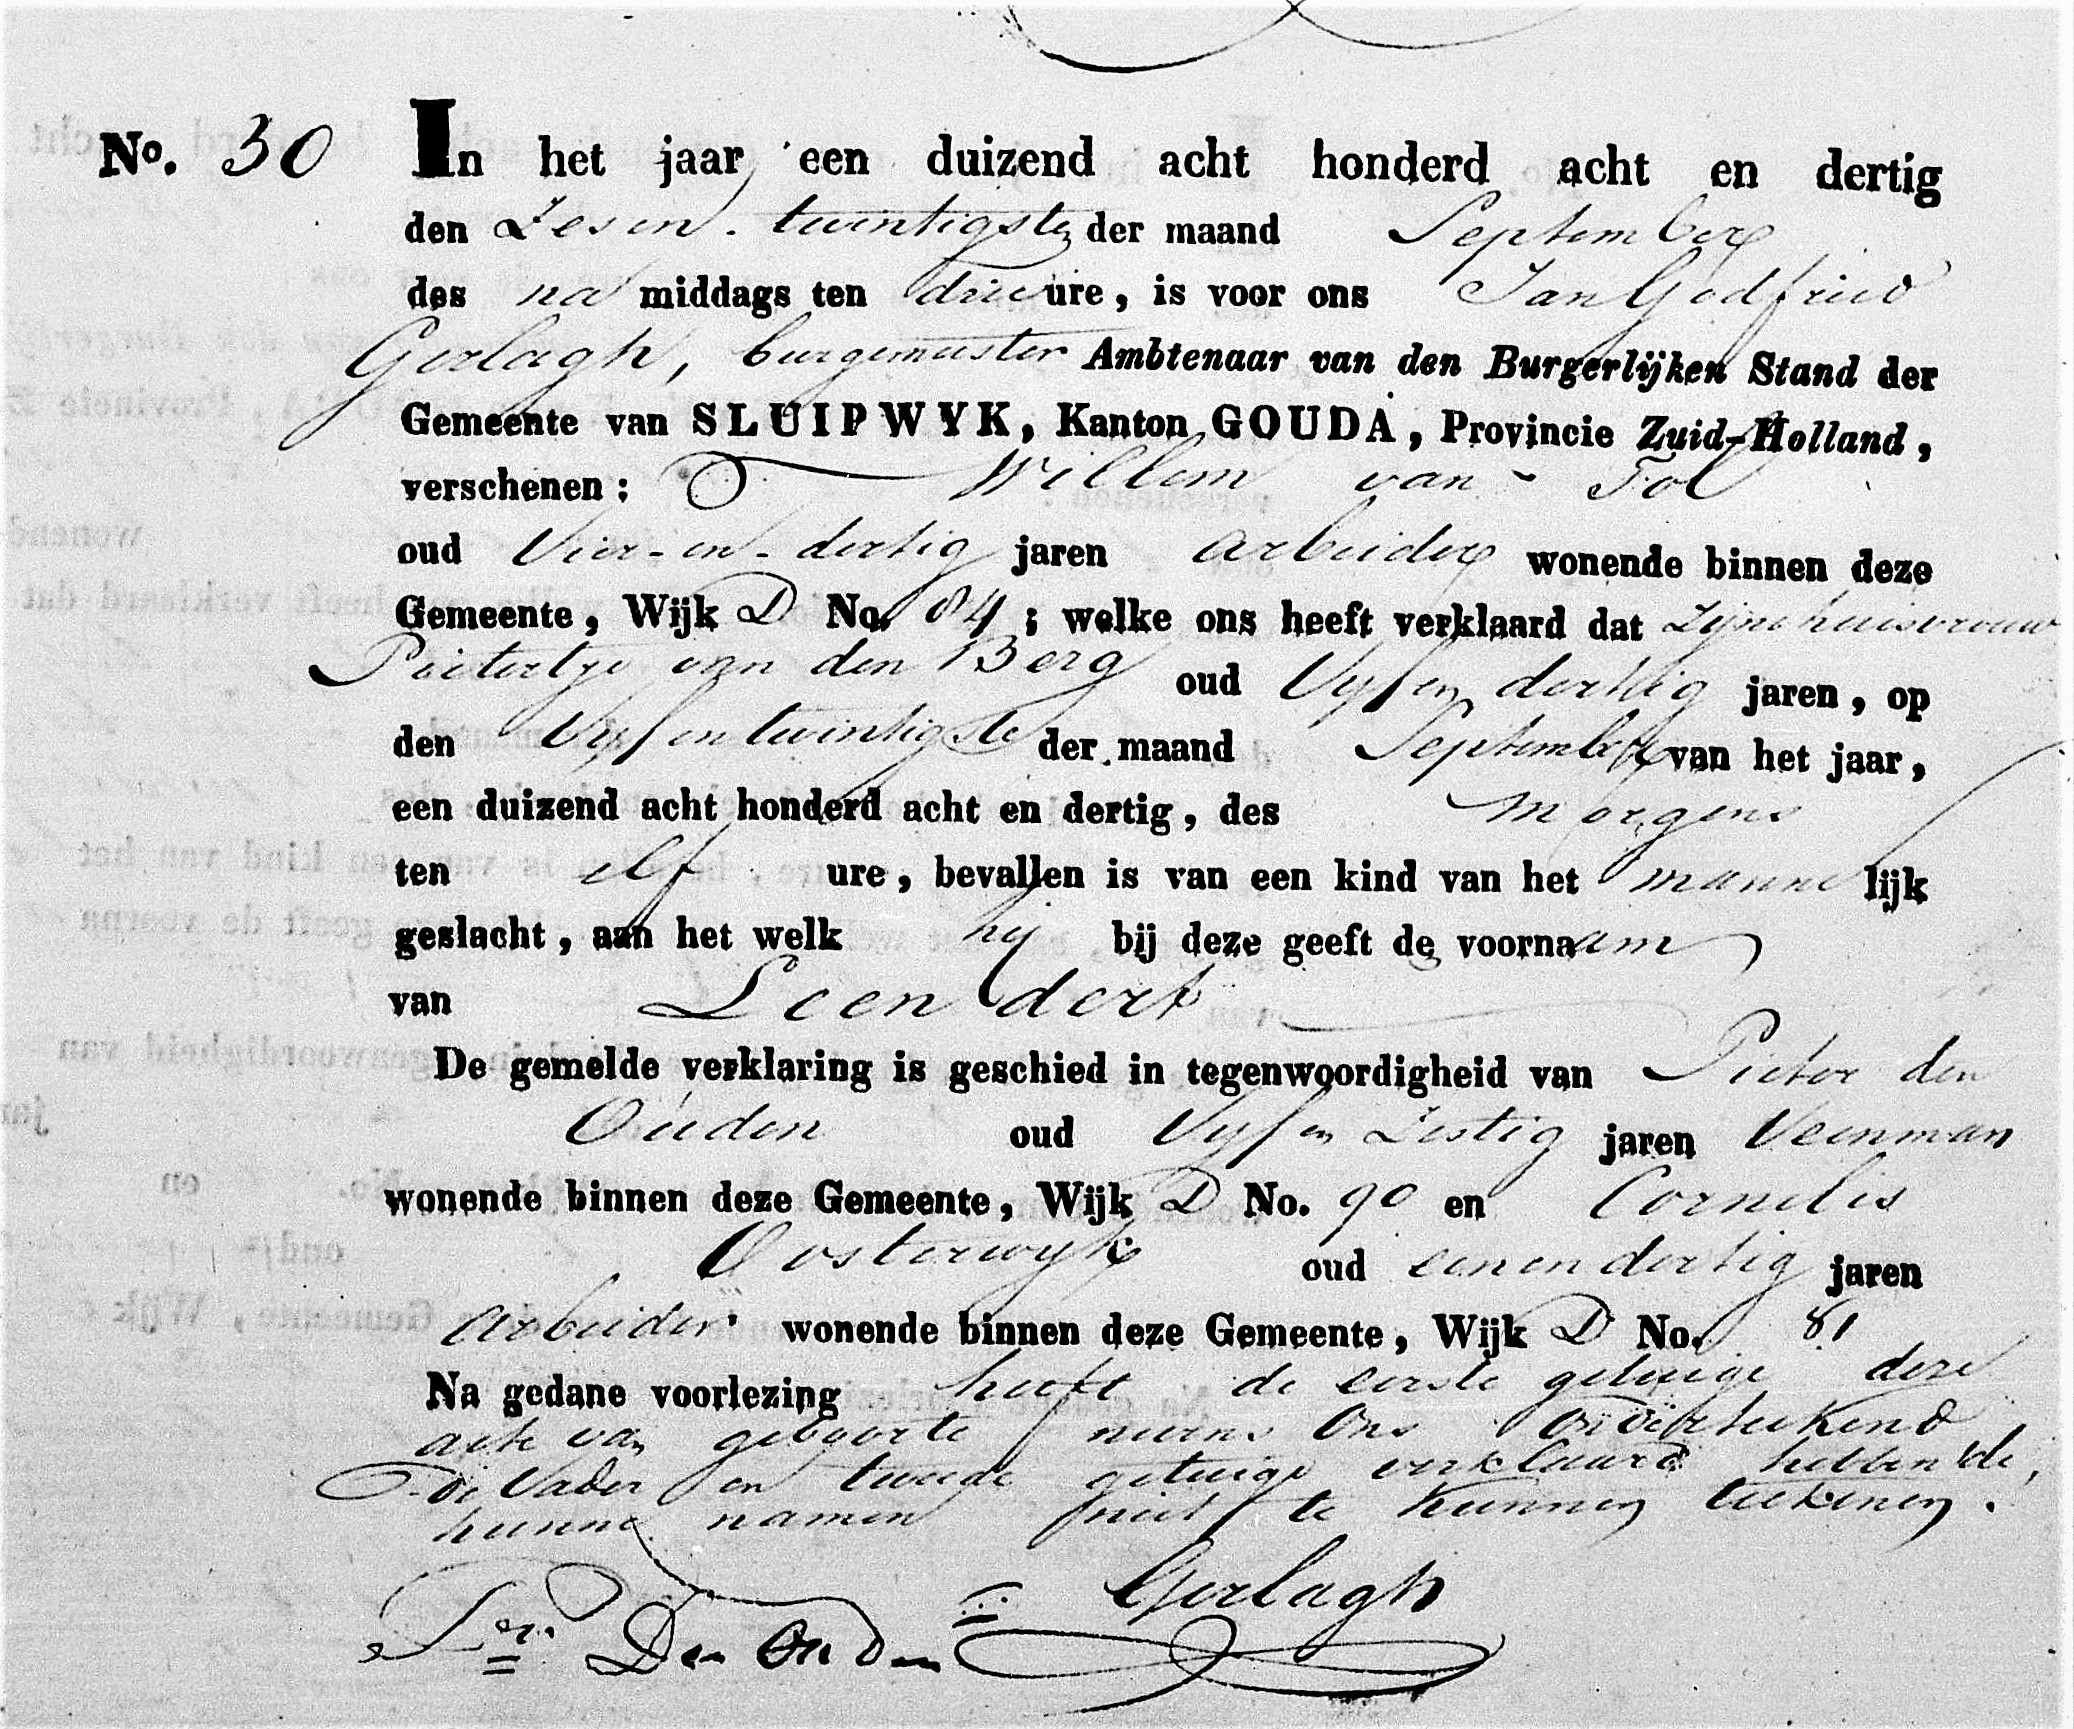 No. 30 In het jaar een duizend acht honderd acht en dertig
den Zesen-twintigste der maand September
des na middags ten drie ure, is voor ons Jan Godfried
Gerlagh, burgemeester Ambtenaar van den Burgerlijken Stand der
Gemeente van SLUIPWYK, Kanton GOUDA, Provincie Zuid-Holland,
verschenen: Willem van Tol
oud Vier-en-dertig jaren arbeider wonende binnen deze
Gemeente, Wijk D No. 84; welke ons heeft verklaard dat zijne huisvrouw
Pietertje van den Berg oud Vyf en dertig jaren, op
den Vyf en twintigste der maand September van het jaar,
een duizend acht honderd acht en dertig, des morgens
ten elf ure, bevallen is van een kind van het mannelijk
geslacht, aan het welk hij bij deze geeft de voornaam
van Leendert
De gemelde verklaring is geschied in tegenwoordigheid van Pieter den
Ouden oud Vyf en Zestig jaren Veenman
wonende binnen deze Gemeente, Wijk D No. 90 en Cornelis
Oosterwyk oud een en dertig jaren
Arbeider wonende binnen deze Gemeente, Wijk D No. 81
Na gedane voorlezing heeft de eerste getuige deze
acte van geboorte nevens Ons onderteekend
de Vader en tweede getuige verklaard hebbende,
hunne namen niet te kunnen teekenen.
Gerlagh
Pr. Den Ouden